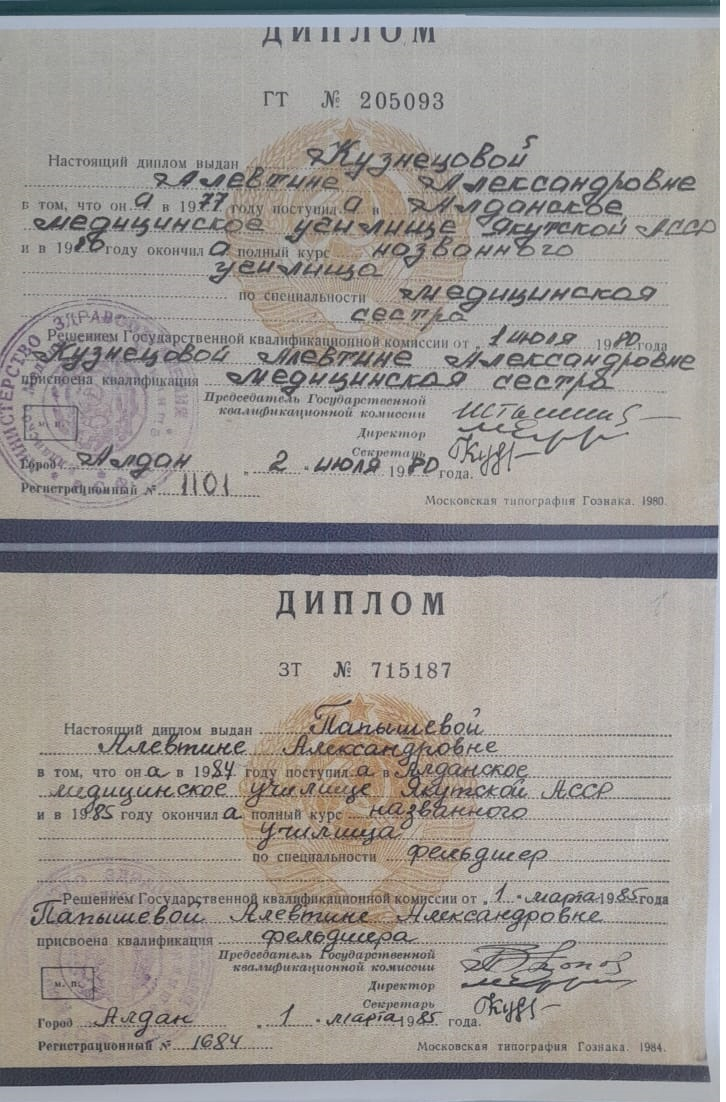 ДИПЛОМ
ГТ № 205093
Настоящий диплом выдан Кузнецовой
Алевтине Александровне
в том, что он а в 1977 году поступил а в Алданское
медицинское училище Якутской АССР
и в 1980 году окончил а полный курс названного
училища
по специальности медицинская
сестра
Решением Государственной квалификационной комиссии от „ 1 июля 1980 года
Кузнецовой Алевтине Александровне
присвоена квалификация медицинская сестра
Председатель Государственной
квалификационной комиссии
Директор
Секретарь
М. П.
Город Алдан „ 2 " июля 1980 года.
Регистрационный № 1101
Московская типография Гознака. 1980.
МИНИСТЕРСТВО ЗДРАВООХРАНЕНИЯ
ДИПЛОМ
ЗТ № 715187
Настоящий диплом выдан Папышевой
Алевтине Александровне
в том, что он а в 1984 году поступил а в Алданское
медицинское училище Якутской АССР
и в 1985 году окончил а полный курс названного
училища
по специальности фельдшер
Решением Государственной квалификационной комиссии от „ 1 " марта 1985 года
Папышевой Алевтине Александровне
присвоена квалификация фельдшера
Председатель Государственной
квалификационной комиссии
Директор
Секретарь
М. П.
Город Алдан „ 1 " марта 1985 года.
Регистрационный № 1684
Московская типография Гознака. 1984.